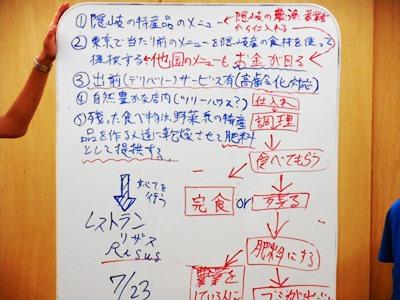 ①隠岐の特産品のメニュー ←隠岐の農漁業者から仕入れる
②東京で当たり前のメニューを隠岐産の食材を使って
提供する 他国のメニューも お金が回る
③出前(デリバリー)サービス有(高齢化対応)
④自然豊かな店内(ツリーハウス?)
仕入れ
⑤残った食べ物は、野菜系の特産
品を作る人達に乾燥させて肥料
として提供する。
調理
食べてもらう
完食 or 残る
肥料にする
農業を
している人に
ゴミが出
すべてを
行う
レストラン
リザス
Risus
7/23